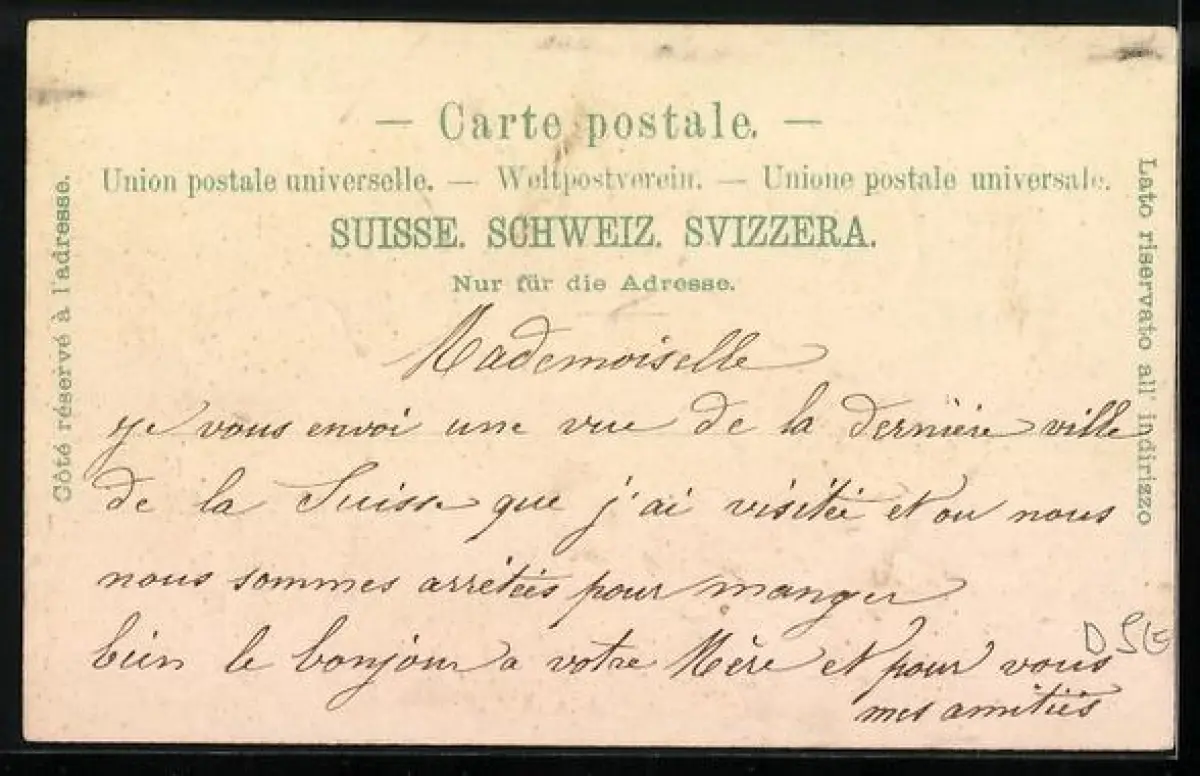 — Carte postale. —
Union postale universelle. — Weltpostverein. — Unione postale universale.
SUISSE. SCHWEIZ. SVIZZERA.
Nur für die Adresse.
Côté réservé à l'adresse.
Lato riservato all' indirizzo
Mademoiselle
je vous envoi une vue de la dernière ville
de la Suisse que j'ai visitée et ou nous
nous sommes arrêtées pour manger
bien le bonjour a votre Mère et pour vous
mes amitiés